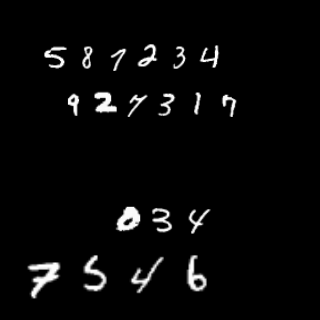 581234
927317
034
7546